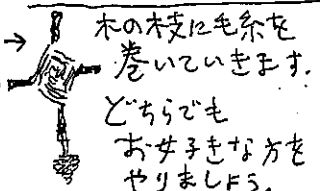 木の枝に毛糸を
巻いていきます.
どちらでも
お好きな方を
やりましょう.